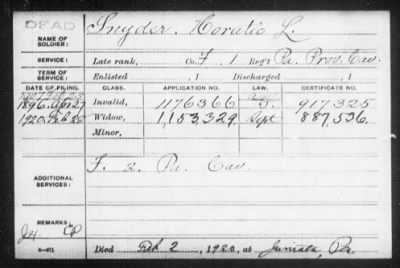 DEAD
NAME OF SOLDIER: Snyder, Horatio L.
SERVICE: Late rank, Co. F, 1 Reg't Pa. Prov. Cav.
TERM OF SERVICE: Enlisted , 1 Discharged , 1
DATE OF FILING. CLASS. APPLICATION NO. LAW. CERTIFICATE NO.
1896, Apr 27 Invalid, 1176366 917325
1920, Feb 26 Widow, 1,153,329 Sept 887,536.
Minor,
ADDITIONAL SERVICES: F. 2. Pa. Cav.
REMARKS:
CP
Died Feb 2, 1920, at Juniata, Pa.